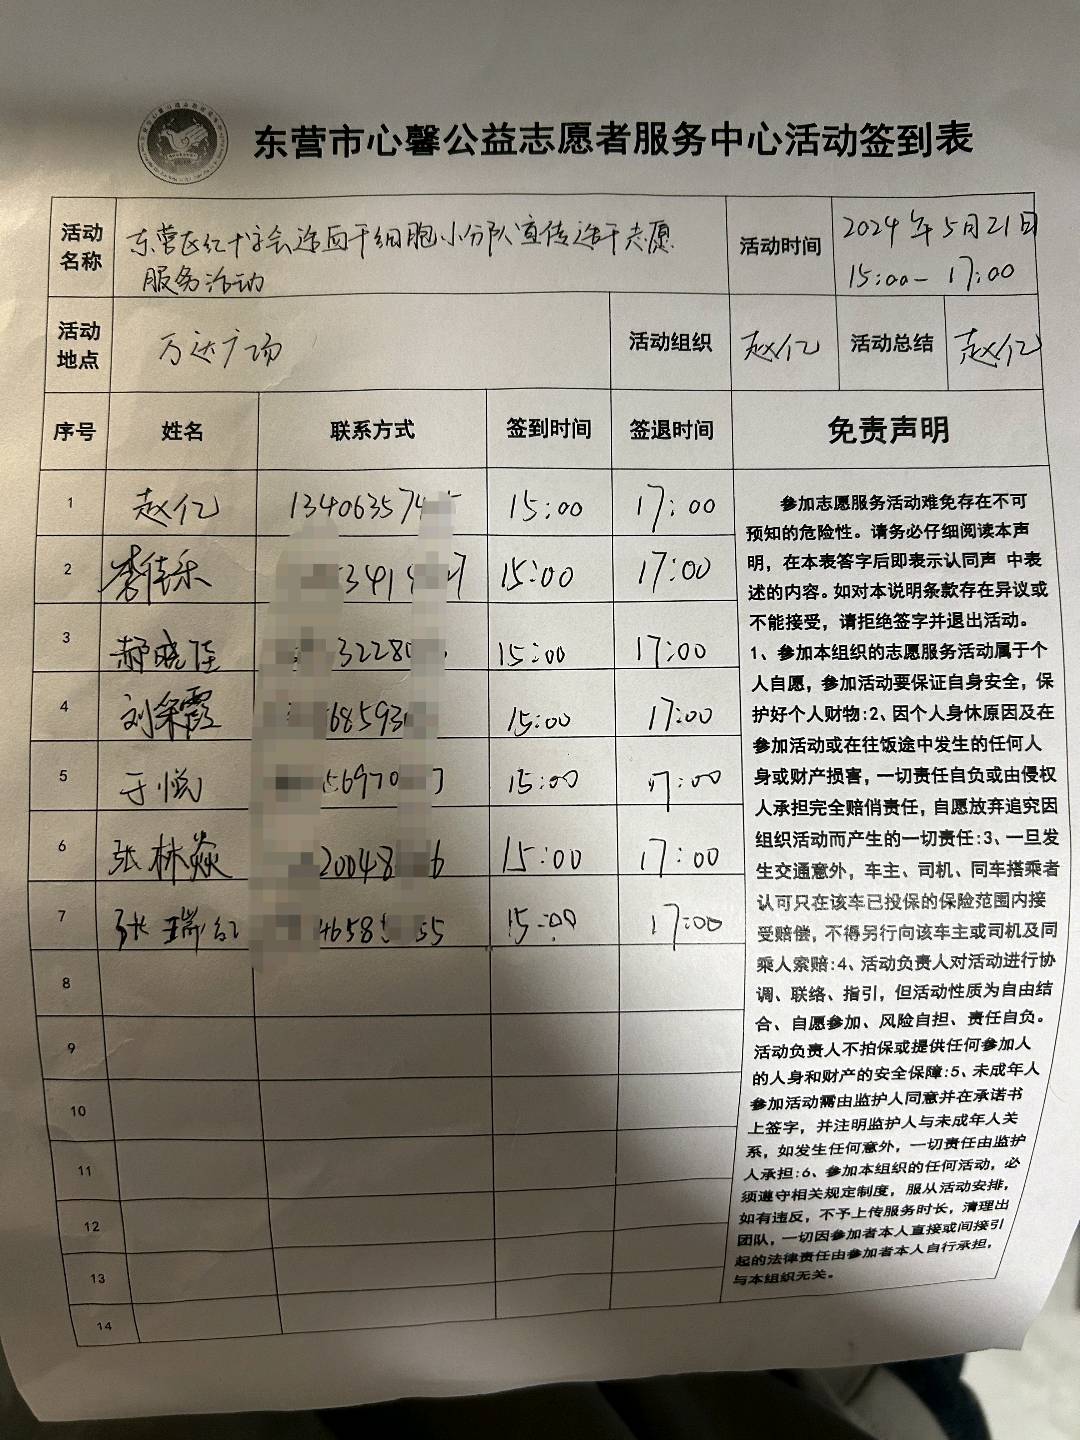 东营市心馨公益志愿者服务中心活动签到表
活动名称
东营区红十字会造血干细胞小分队宣传造干志愿
服务活动
活动时间
2024年5月21日
15:00-17:00
活动地点
万达广场
活动组织
赵亿
活动总结
赵亿
序号 姓名 联系方式 签到时间 签退时间 免责声明
1 赵亿 134063574 15:00 17:00
2 李佳乐 15:00 17:00
3 郝晓佳 3228 15:00 17:00
4 刘霞 685930 15:00 17:00
5 于悦 56970 15:00 17:00
6 张林焱 20048 6 15:00 17:00
7 张瑞红 4658 55 15:00 17:00
8
9
10
11
12
13
14
参加志愿服务活动难免存在不可
预知的危险性。请务必仔细阅读本声
明，在本表答字后即表示认同声 中表
述的内容。如对本说明条款存在异议或
不能接受，请拒绝签字并退出活动。
1、参加本组织的志愿服务活动属于个
人自愿，参加活动要保证自身安全，保
护好个人财物:2、因个人身休原因及在
参加活动或在往饭途中发生的任何人
身或财产损害，一切责任自负或由侵权
人承担完全赔俏责任，自愿放弃追究因
组织活动而产生的一切责任:3、一旦发
生交通意外，车主、司机、同车搭乘者
认可只在该车已投保的保险范围内接
受赔偿，不得另行向该车主或司机及同
乘人索赔:4、活动负责人对活动进行协
调、联络、指引，但活动性质为自由结
合、自愿参加、风险自担、责任自负。
活动负责人不拍保或提供任何参加人
的人身和财产的安全保障:5、未成年人
参加活动需由监护人同意并在承诺书
上签字，并注明监护人与未成年人关
系，如发生任何意外，一切责任由监护
人承担:6、参加本组织的任何活动，必
须遵守相关规定制度，服从活动安排，
如有违反，不予上传服务时长，清理出
团队，一切因参加者本人直接或间接引
起的法律责任由参加者本人自行承担，
与本组织无关。